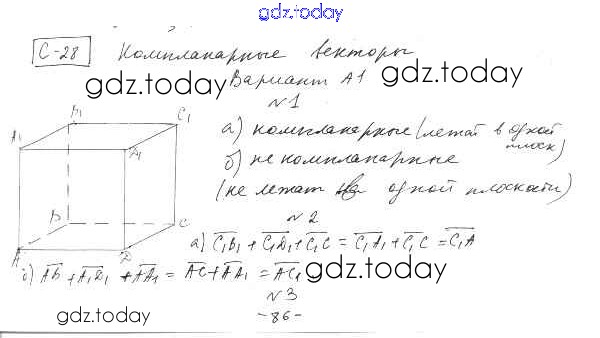 gdz.today
С-28 Компланарные векторы
Вариант А1
gdz.today gdz.today
№1
B₁ C₁
A₁ D₁
B C
A D
а) компланарные (лежат в одной плоск)
б) не компланарные
(не лежат в одной плоскости)
№2
а) C₁B₁ + C₁D₁ + C₁C = C₁A₁ + C₁C = C₁A
б) AB + A₁D₁ + AA₁ = AC + AA₁ = AC₁
gdz.today
№3
gdz.today
-86-